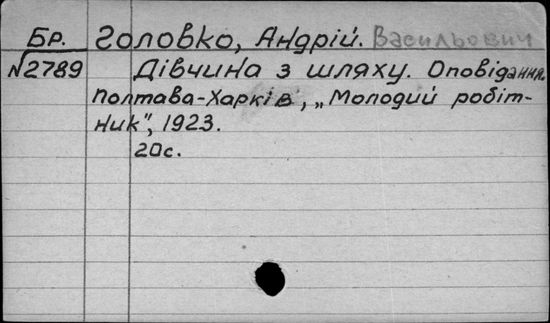 Бр. Головко, Андрій. Васильович
№2789 Дівчина з шляху. Оповідання.
Полтава-Харків, „Молодий робіт-
ник", 1923.
20с.